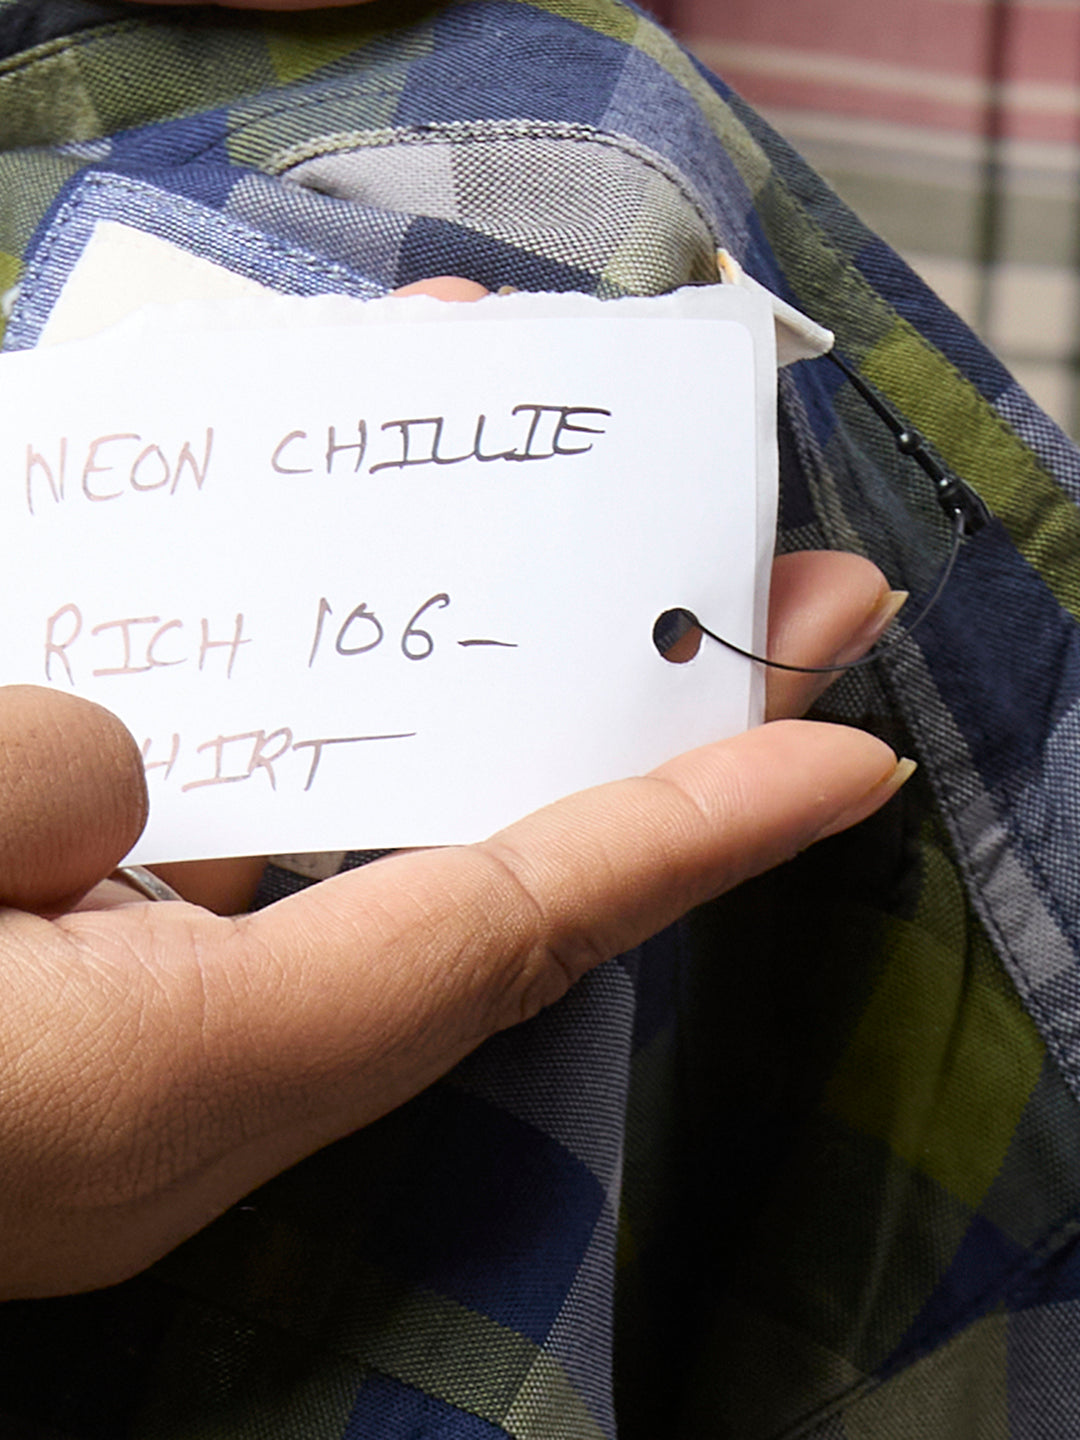 NEON CHILLIE
RICH 106-
HIRT